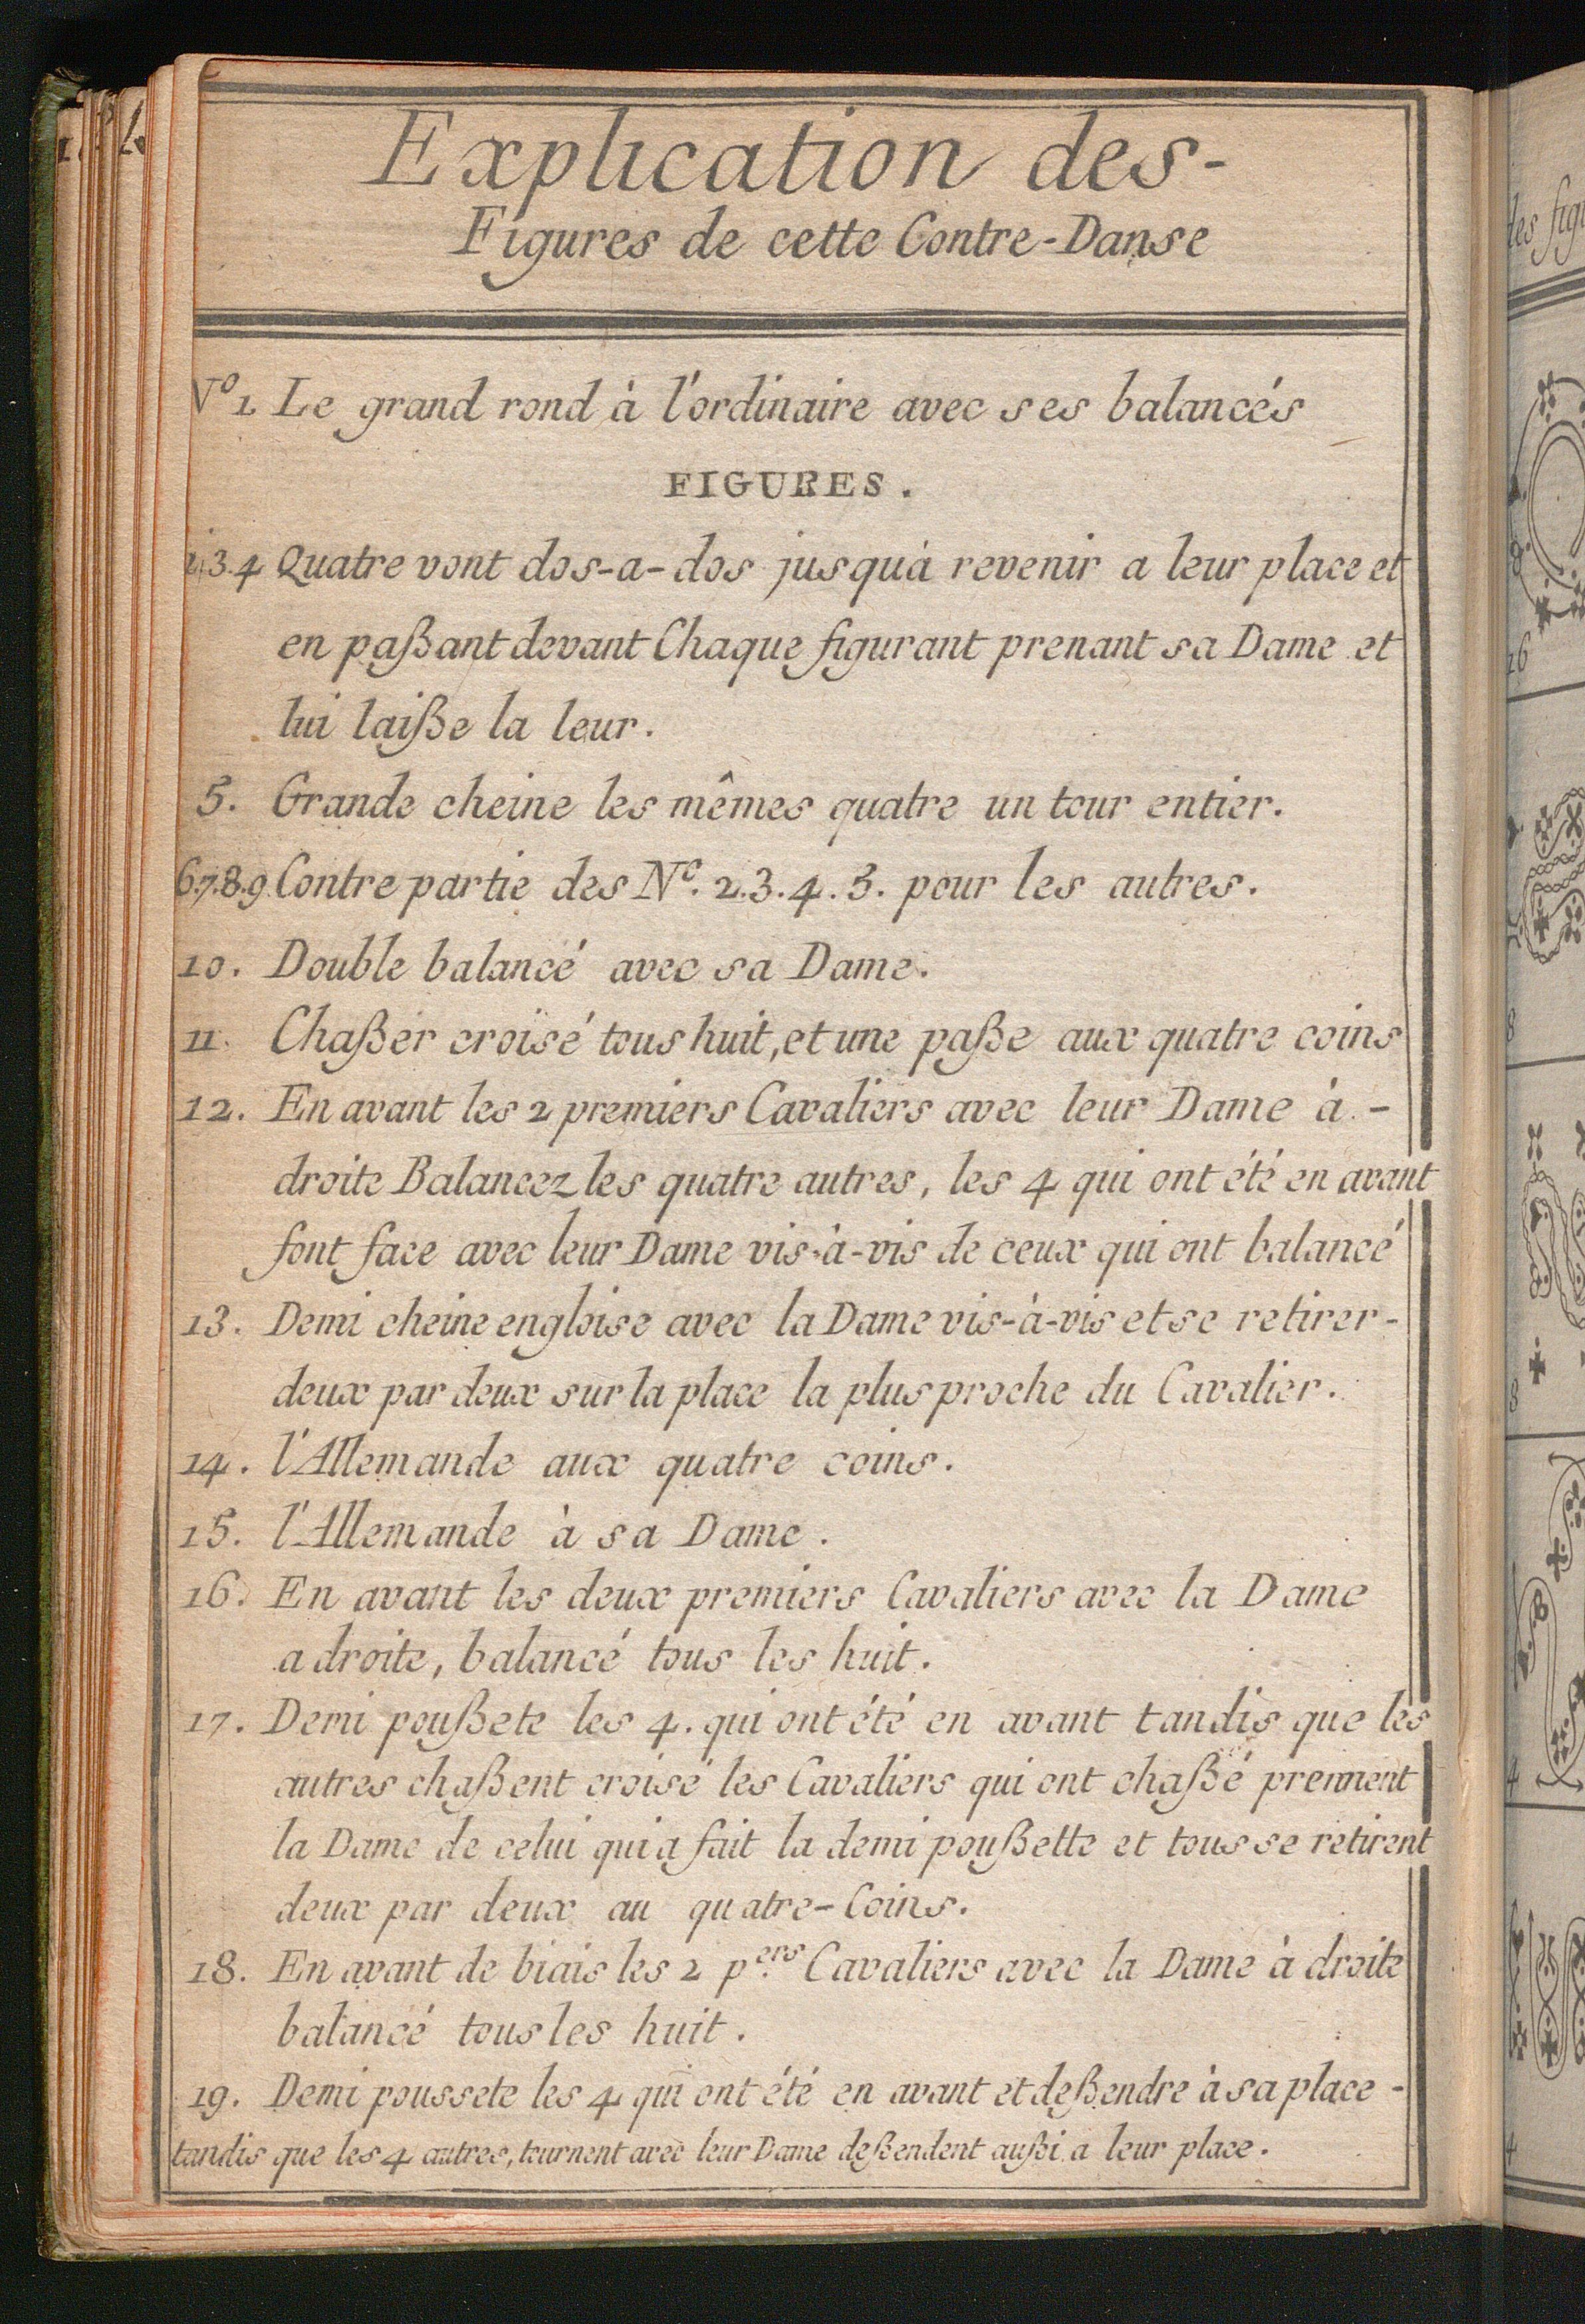 Explication des-
Figures de cette Contre-Danse
N.º 1. Le grand rond à l'ordinaire avec ses balancés
FIGURES.
3.4 Quatre vont dos-a-dos jusqu'à revenir a leur place et
en paßant devant Chaque figurant prenant sa Dame et
lui laiße la leur.
5. Grande cheine les mêmes quatre un tour entier.
6.7.8.9. Contre partie des Nº. 2.3.4.5. pour les autres.
10. Double balancé avec sa Dame.
11. Chaßer croisé tous huit, et une paße aux quatre coins
12. En avant les 2 premiers Cavaliers avec leur Dame à -
droite Balancez les quatre autres, les 4 qui ont été en avant
font face avec leur Dame vis-à-vis de ceux qui ont balancé
13. Demi cheine engloise avec la Dame vis-à-vis et se retirer-
deux par deux sur la place la plus proche du Cavalier.
14. l'Allemande aux quatre coins.
15. l'Allemande à sa Dame.
16. En avant les deux premiers Cavaliers avec la Dame
a droite, balancé tous les huit.
17. Demi poußete les 4. qui ont été en avant tandis que les
autres chaßent croisé les Cavaliers qui ont chaßé prennent
la Dame de celui qui a fait la demi poußette et tous se retirent
deux par deux au quatre-Coins.
18. En avant de biais les 2 p.ers Cavaliers avec la Dame à droite
balancé tous les huit.
19. Demi poussete les 4 qui ont été en avant et deßendre à sa place -
tandis que les 4 autres, tournent avec leur Dame deßendent außi a leur place.